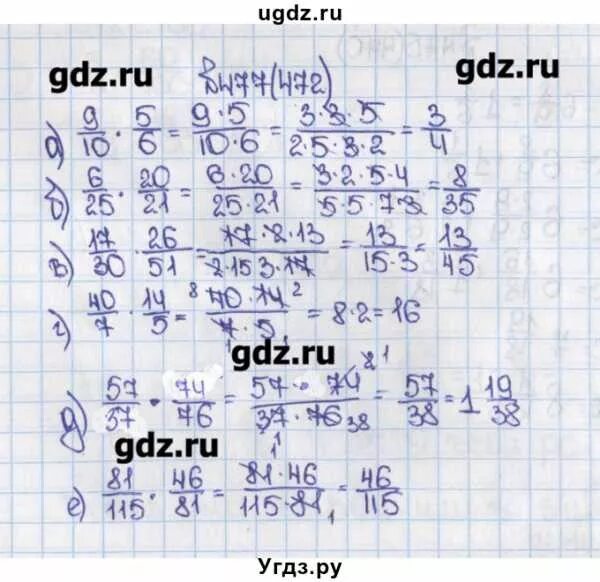 ugdz.ru
gdz.ru gdz.ru
№477(472)
а) 9/10 · 5/6 = 9·5/10·6 = 3·3·5/2·5·3·2 = 3/4
б) 6/25 · 20/21 = 6·20/25·21 = 3·2·5·4/5·5·7·3 = 8/35
в) 17/30 · 26/51 = 17·2·13/2·15·3·17 = 13/15·3 = 13/45
г) 40/7 · 14/5 = 8 40·14 2/7·5 = 8·2 = 16
gdz.ru
д) 57/37 · 74/76 = 57·74 2 1/37·76 38 1 = 57/38 = 1 19/38
gdz.ru
е) 81/115 · 46/81 = 81·46/115·81 1 = 46/115
gdz.ru
Угдз.ру